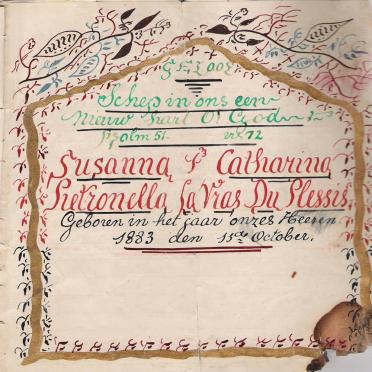 Schep in ons een
Nieuw Hart O! God
Psalm 51 vrs 12
Susanna Catharina
Pietronella La Vras Du Plessis
Geboren in het jaar onzes Heeren
1883 den 11de October.